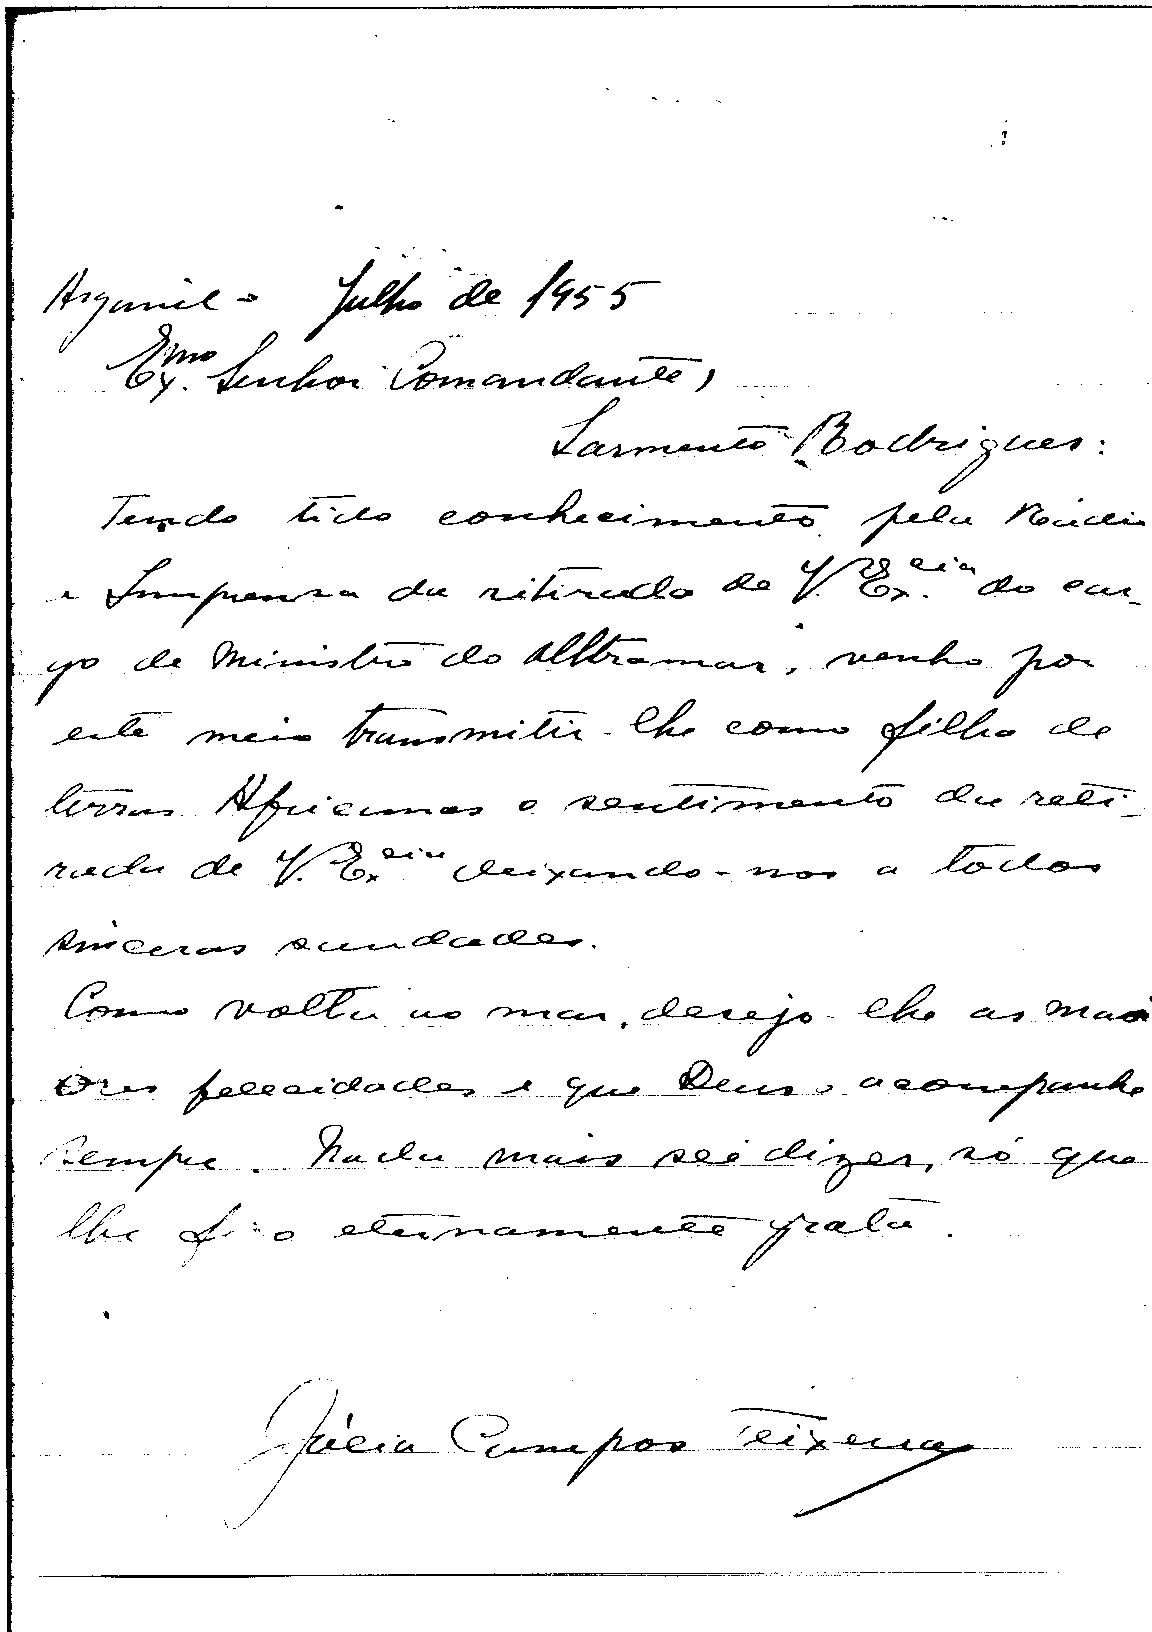 Arganil - Julho de 1955
Exmo. Senhor Comandante,
Sarmento Rodrigues:
Tendo tido conhecimento pela Rádio
e Imprensa da retirada de V. Ex.cia do car-
go de Ministro do Ultramar, venho por
este meio transmitir-lhe como filha de
terras Africanas o sentimento da reti-
rada de V. Ex.cia deixando-nos a todos
sinceras saudades.
Como volta ao mar, desejo-lhe as mai
ores felicidades e que Deus o acompanhe
sempre. Nada mais sei dizer, só que
lhe fico eternamente grata.
Campos Teixeira